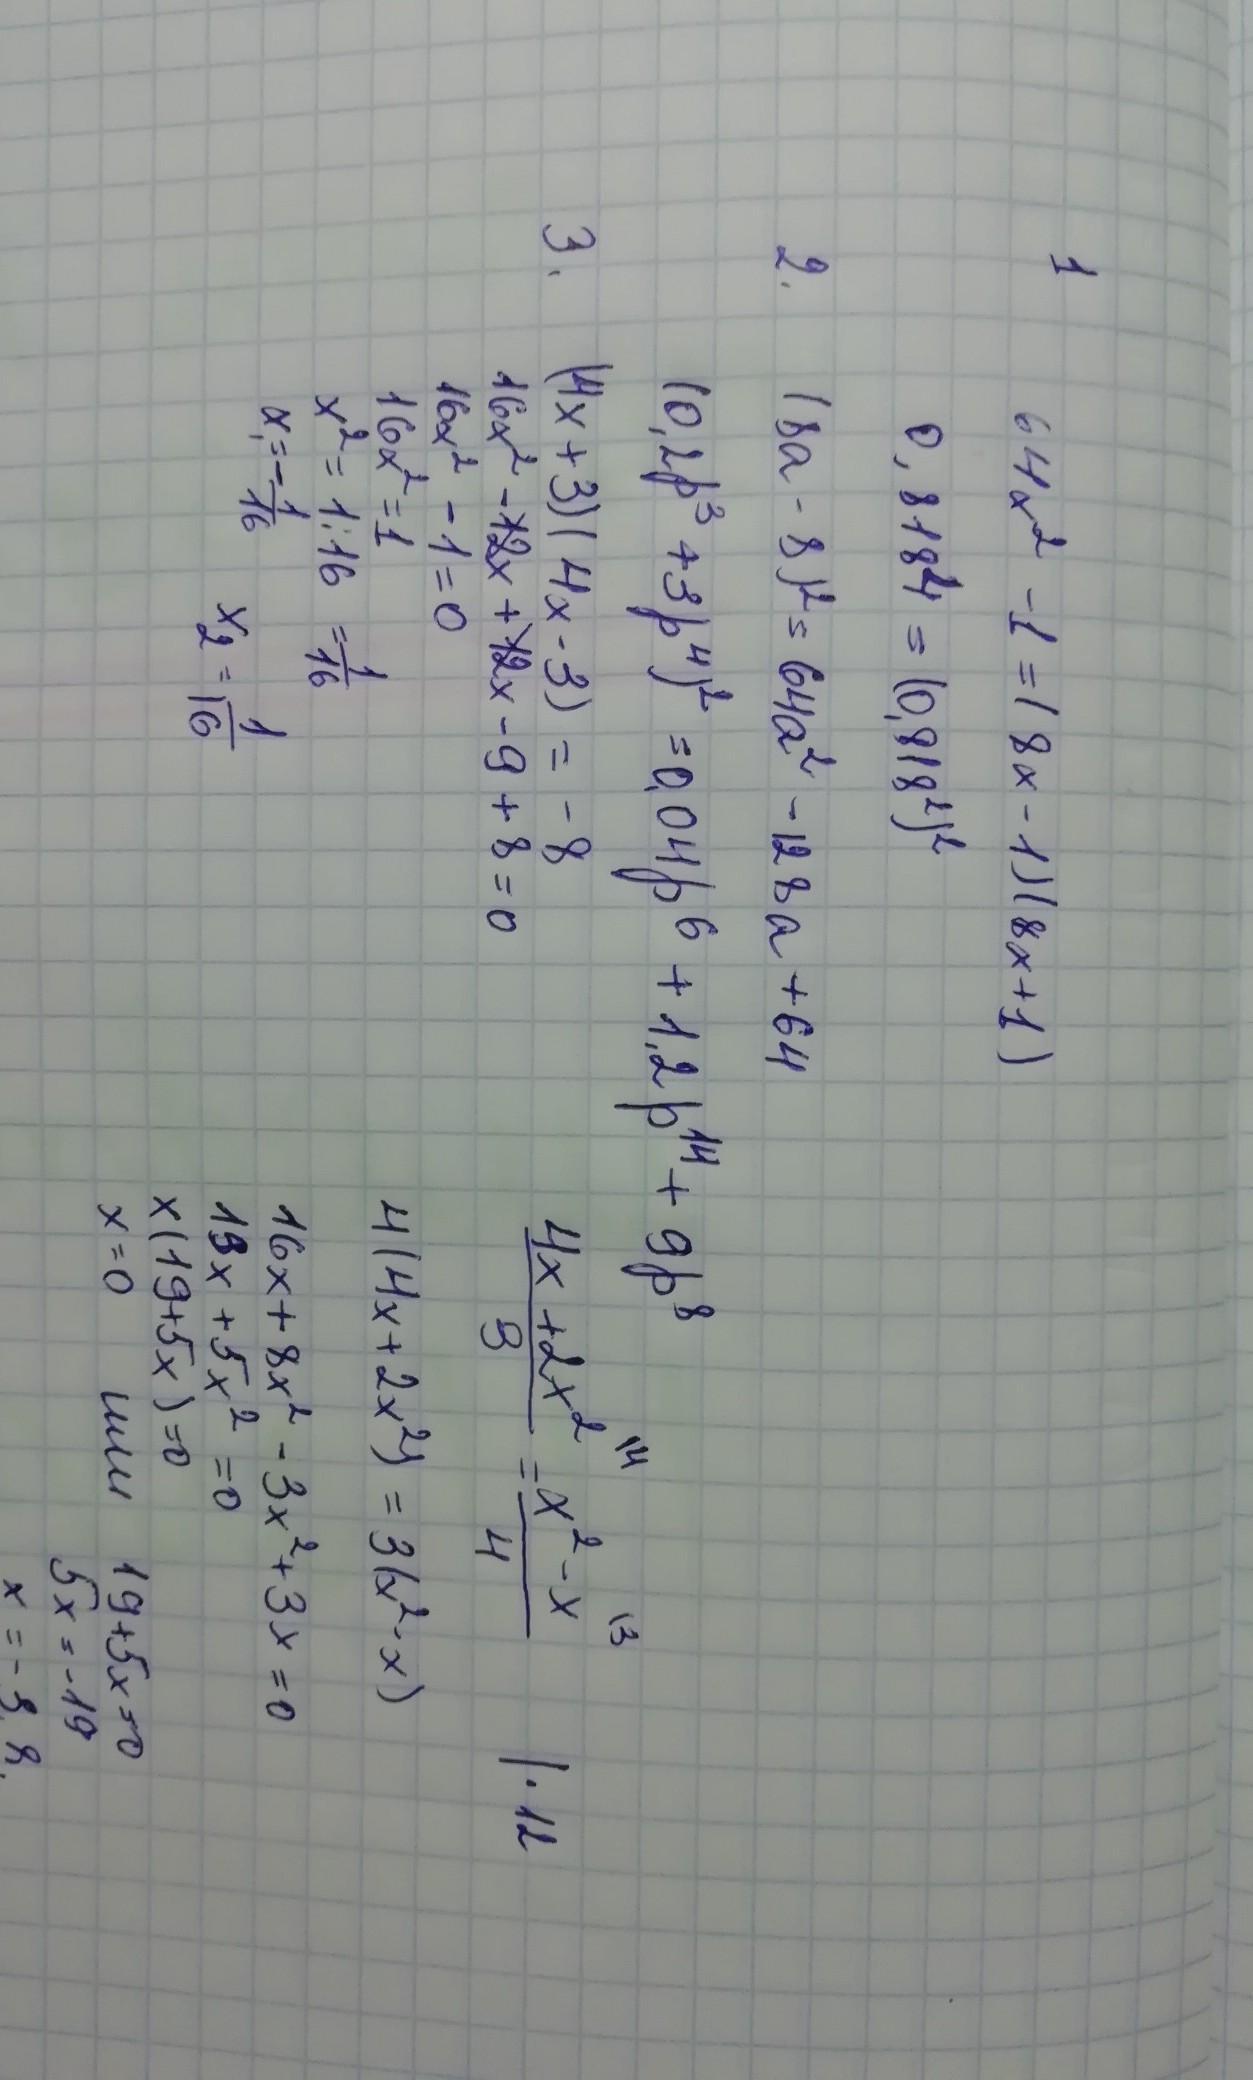 1 64x² - 1 = (8x - 1)(8x + 1)
0,818⁴ = (0,818²)²
2. (8a - 8)² = 64a² - 128a + 64
(0,2p³ + 3p⁴)² = 0,04p⁶ + 1,2p¹⁴ + 9p⁸
3. (4x + 3)(4x - 3) = -8
16x² - 12x + 12x - 9 + 8 = 0
16x² - 1 = 0
16x² = 1
x² = 1:16 = 1/16
x₁ = -1/16
x₂ = 1/16
(4x + 2x²)/3 \4 = (x² - x)/4 \3 | · 12
4(4x + 2x²) = 3(x² - x)
16x + 8x² - 3x² + 3x = 0
19x + 5x² = 0
x(19 + 5x) = 0
x = 0 или 19 + 5x = 0
5x = -19
x = -3,8.